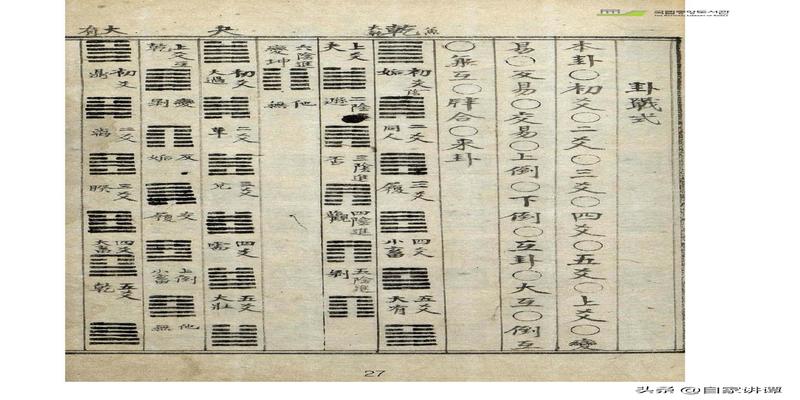 국립중앙도서관
THE NATIONAL LIBRARY OF KOREA
卦戱式
本卦○初爻○二爻○三爻○四爻○五爻○上爻○變
易○反易○交易○上倒○下倒○互卦○大互○倒互
○兼互○牉合○來卦
乾
初爻 姤 二爻 同人 三爻 履 四爻 小畜 五爻 大有
上爻 夬 二陰進 遯 三陰進 否 四陰進 觀 五陰進 剝
六陰進 變坤 他無
夬
初爻 大過 二爻 革 三爻 兌 四爻 需 五爻 大壯
上爻 乾 變 剝 反 姤 交 上倒 小畜 他無
大有
初爻 鼎 二爻 离 三爻 睽 四爻 大畜 五爻 乾
27
头条 @自家讲谭